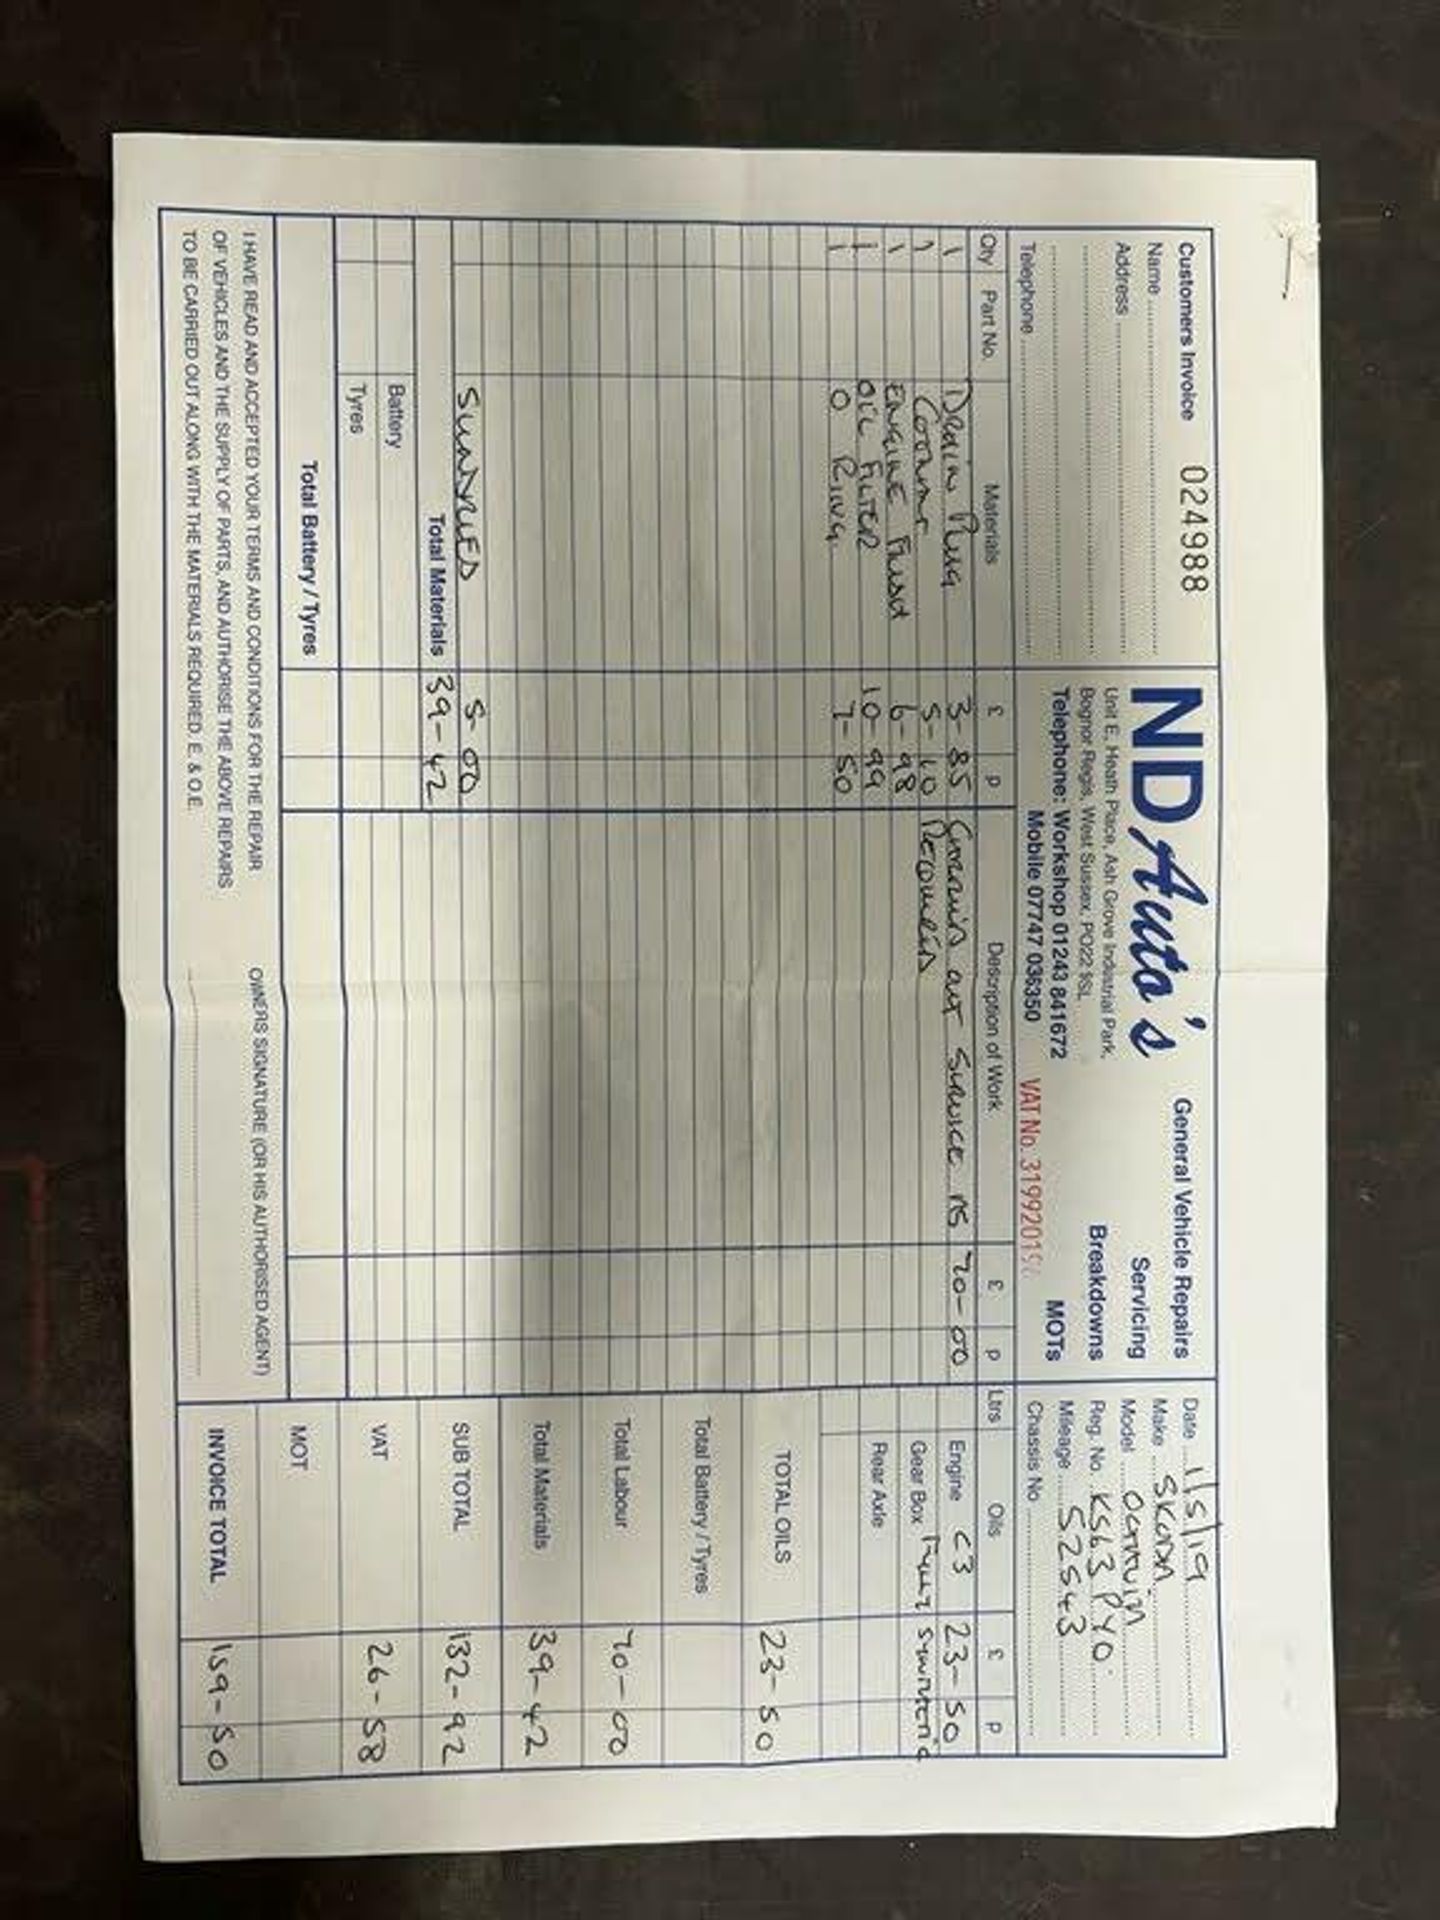 Customers Invoice 024988
Name
Address
Telephone
ND Auto's
Unit E, Heath Place, Ash Grove Industrial Park,
Bognor Regis, West Sussex, PO22 9SL
Telephone: Workshop 01243 841672
Mobile 07747 036350
VAT No. 3199201
General Vehicle Repairs
Servicing
Breakdowns
MOTs
Date 1/5/19
Make SKODA
Model OCTAVIA
Reg. No. KS63 PYO
Mileage 52543
Chassis No
Qty Part No. Materials £ p
1 Drain Plug 3-85
1 Coolant 5-10
1 ENGINE FLUSH 6-98
1 OIL FILTER 10-99
1 O RING 7-50
SUNDRIES 5-00
Total Materials 39-42
Battery
Tyres
Total Battery / Tyres
Description of Work £ p
Carried out service as 70-00
Required
Ltrs Oils £ p
Engine C3 23-50
Gear Box Fully Synthetic
Rear Axle
TOTAL OILS 23-50
Total Battery / Tyres
Total Labour 70-00
Total Materials 39-42
SUB TOTAL 132-92
VAT 26-58
MOT
INVOICE TOTAL 159-50
I HAVE READ AND ACCEPTED YOUR TERMS AND CONDITIONS FOR THE REPAIR
OF VEHICLES AND THE SUPPLY OF PARTS, AND AUTHORISE THE ABOVE REPAIRS
TO BE CARRIED OUT ALONG WITH THE MATERIALS REQUIRED. E. & O.E.
OWNERS SIGNATURE (OR HIS AUTHORISED AGENT)